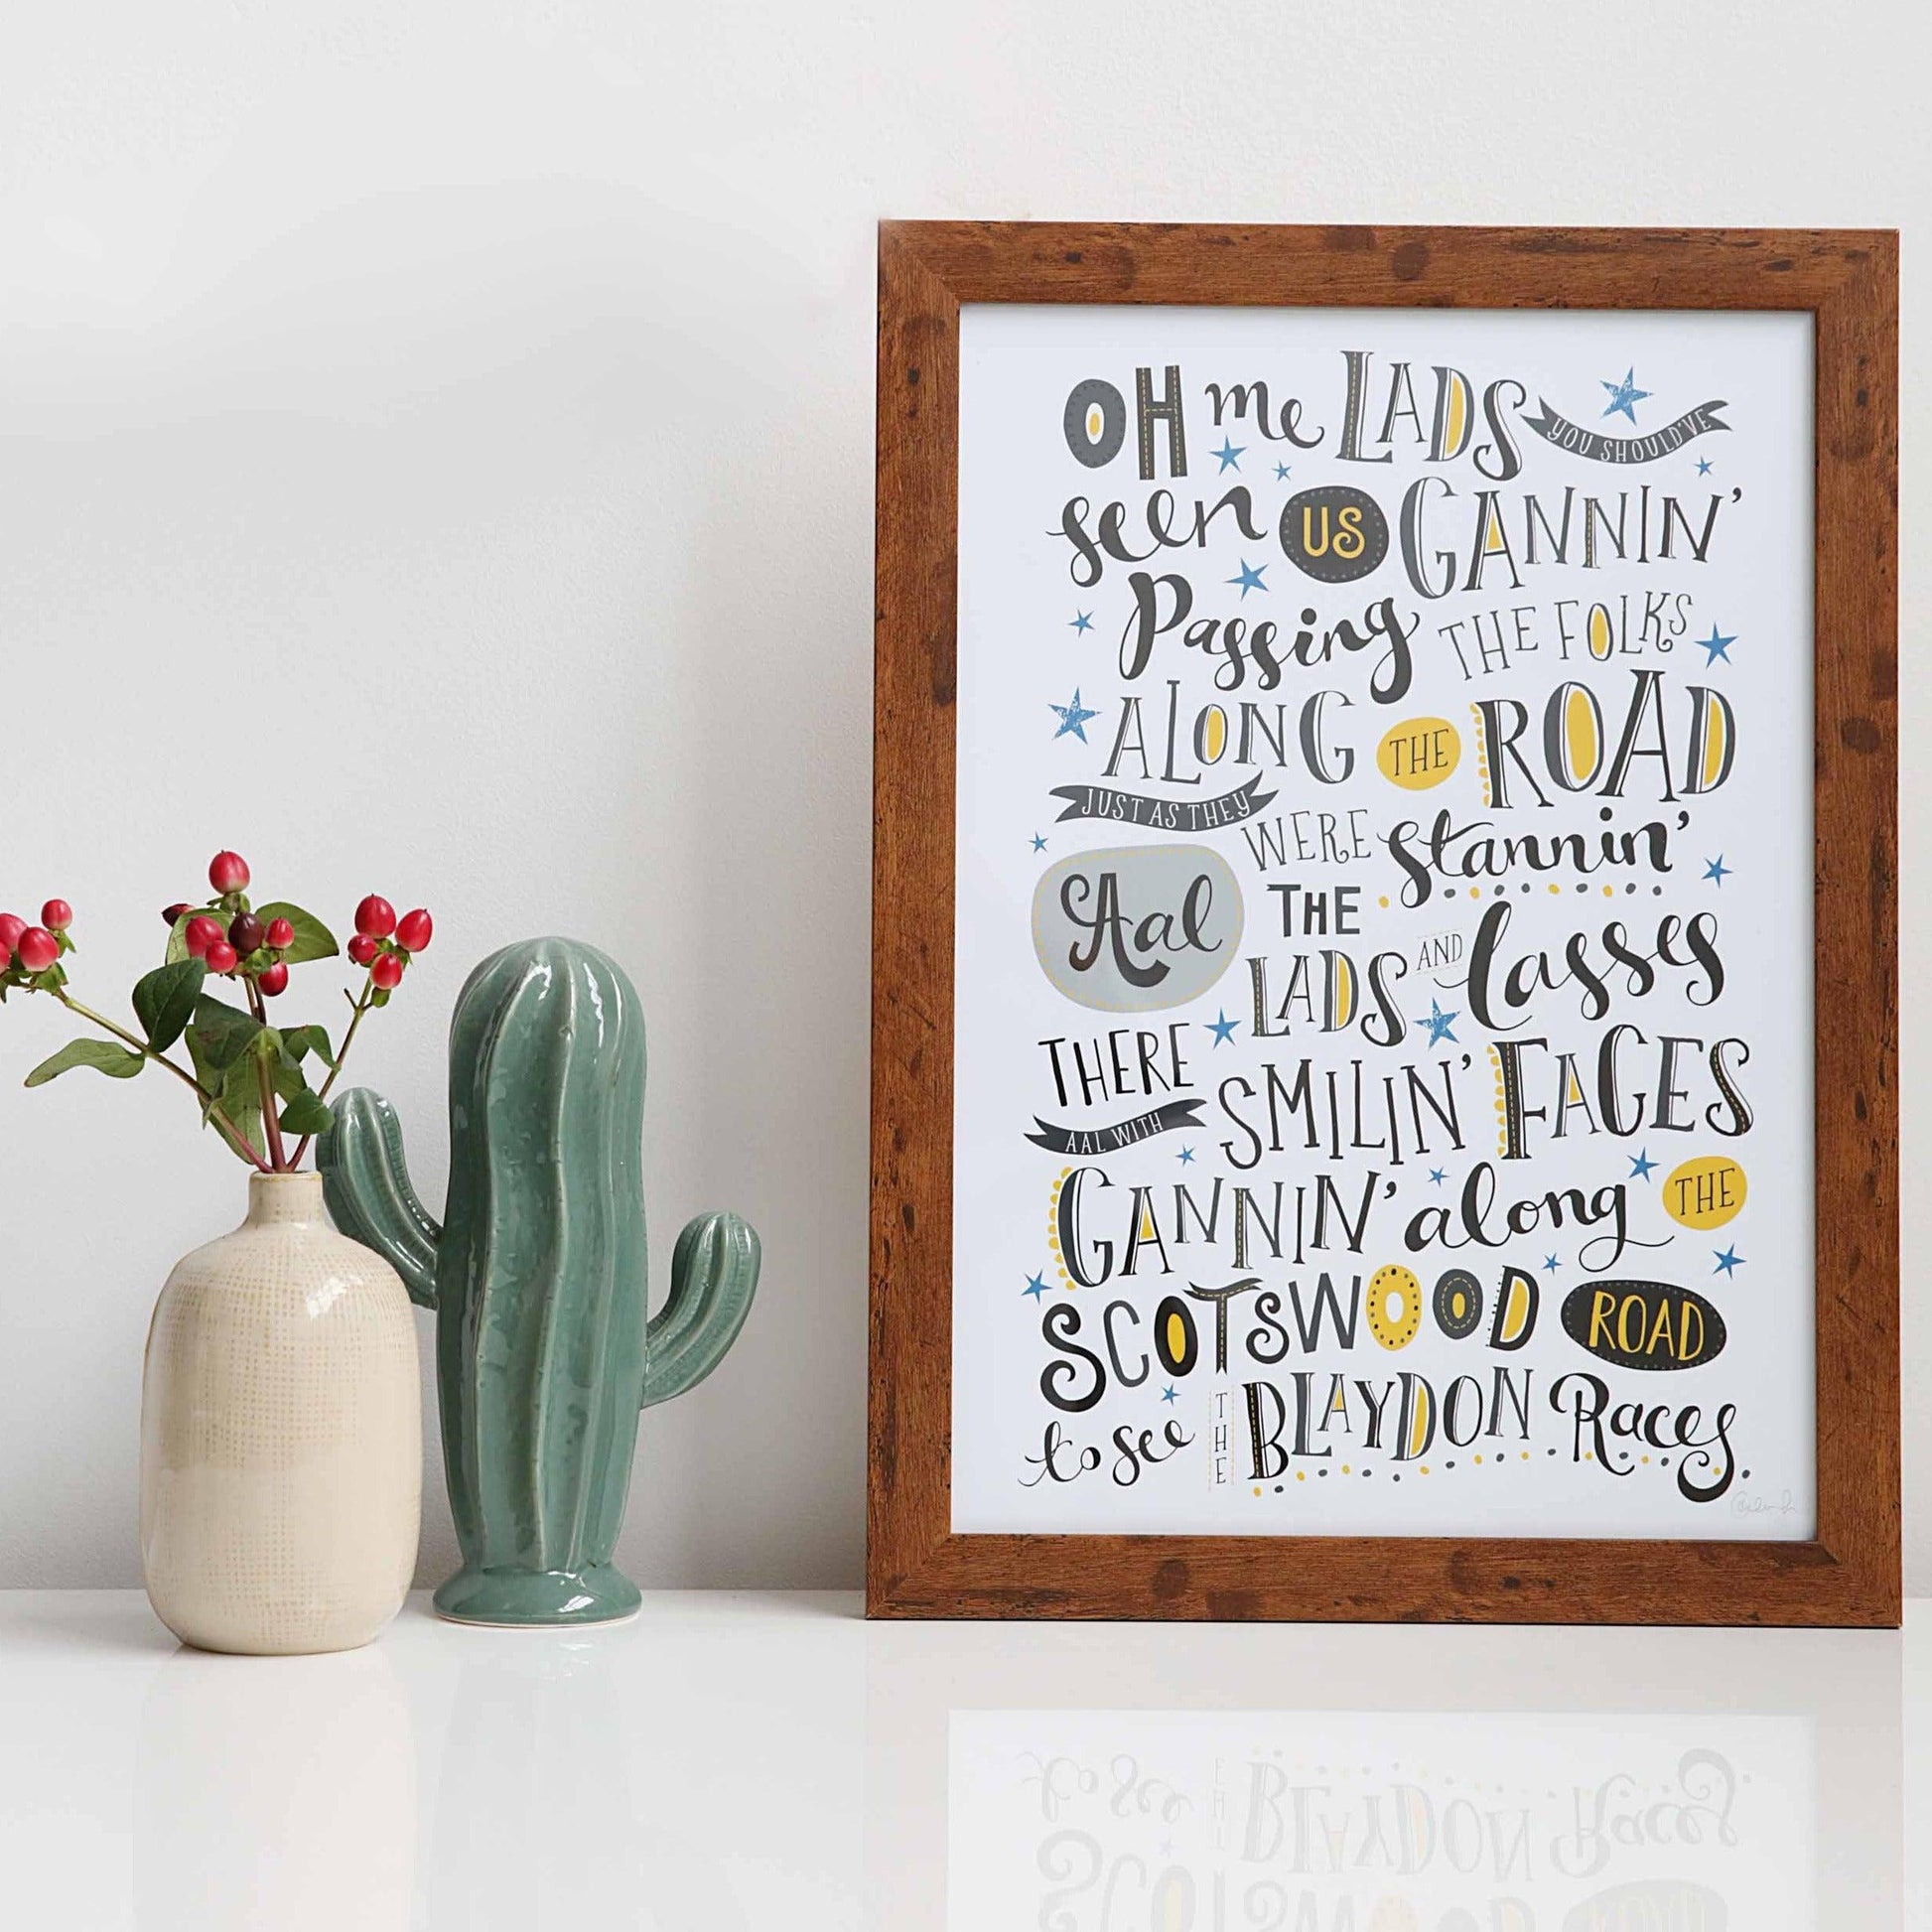 OH me LADS YOU SHOULD'VE
seen US GANNIN'
Passing THE FOLKS
ALONG THE ROAD
JUST AS THEY WERE stannin'
Aal THE
LADS AND lasses
THERE
AAL WITH SMILIN' FACES
GANNIN' along THE
SCOTSWOOD ROAD
to see THE BLAYDON Races.